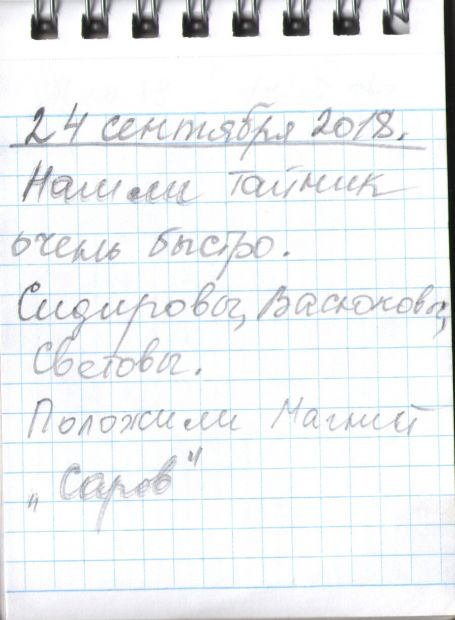 24 сентября 2018.
Нашли тайник
очень быстро.
Сидировы, Васюковы,
Световы.
Положили Магнит
„Саров"